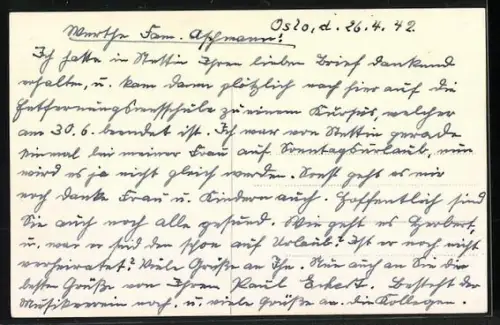 Oslo, d. 26.4.42.
Werthe Fam. Aschmann!
Ich hatte in Stettin Ihren lieben Brief dankend
erhalten, u. kam dann plötzlich nach hier auf die
Entfernungsmesschule zu einem Kursus, welcher
am 30.6. beendet ist. Ich war von Stettin gerade
einmal bei meiner Frau auf Sonntagsurlaub, nun
wird es ja nicht gleich werden. Sonst geht es mir
noch danke Frau u. Kindern auch. Hoffentlich sind
Sie auch noch alle gesund. Wie geht es Herbert,
u. war er den schon auf Urlaub? Ist er noch nicht
verheiratet? Viele Grüße an Ihn. Nun auch an Sie die
besten Grüße von Ihrem Paul Eckert. Besteht der
Musikverein noch. u. viele Grüße an die Kollegen.